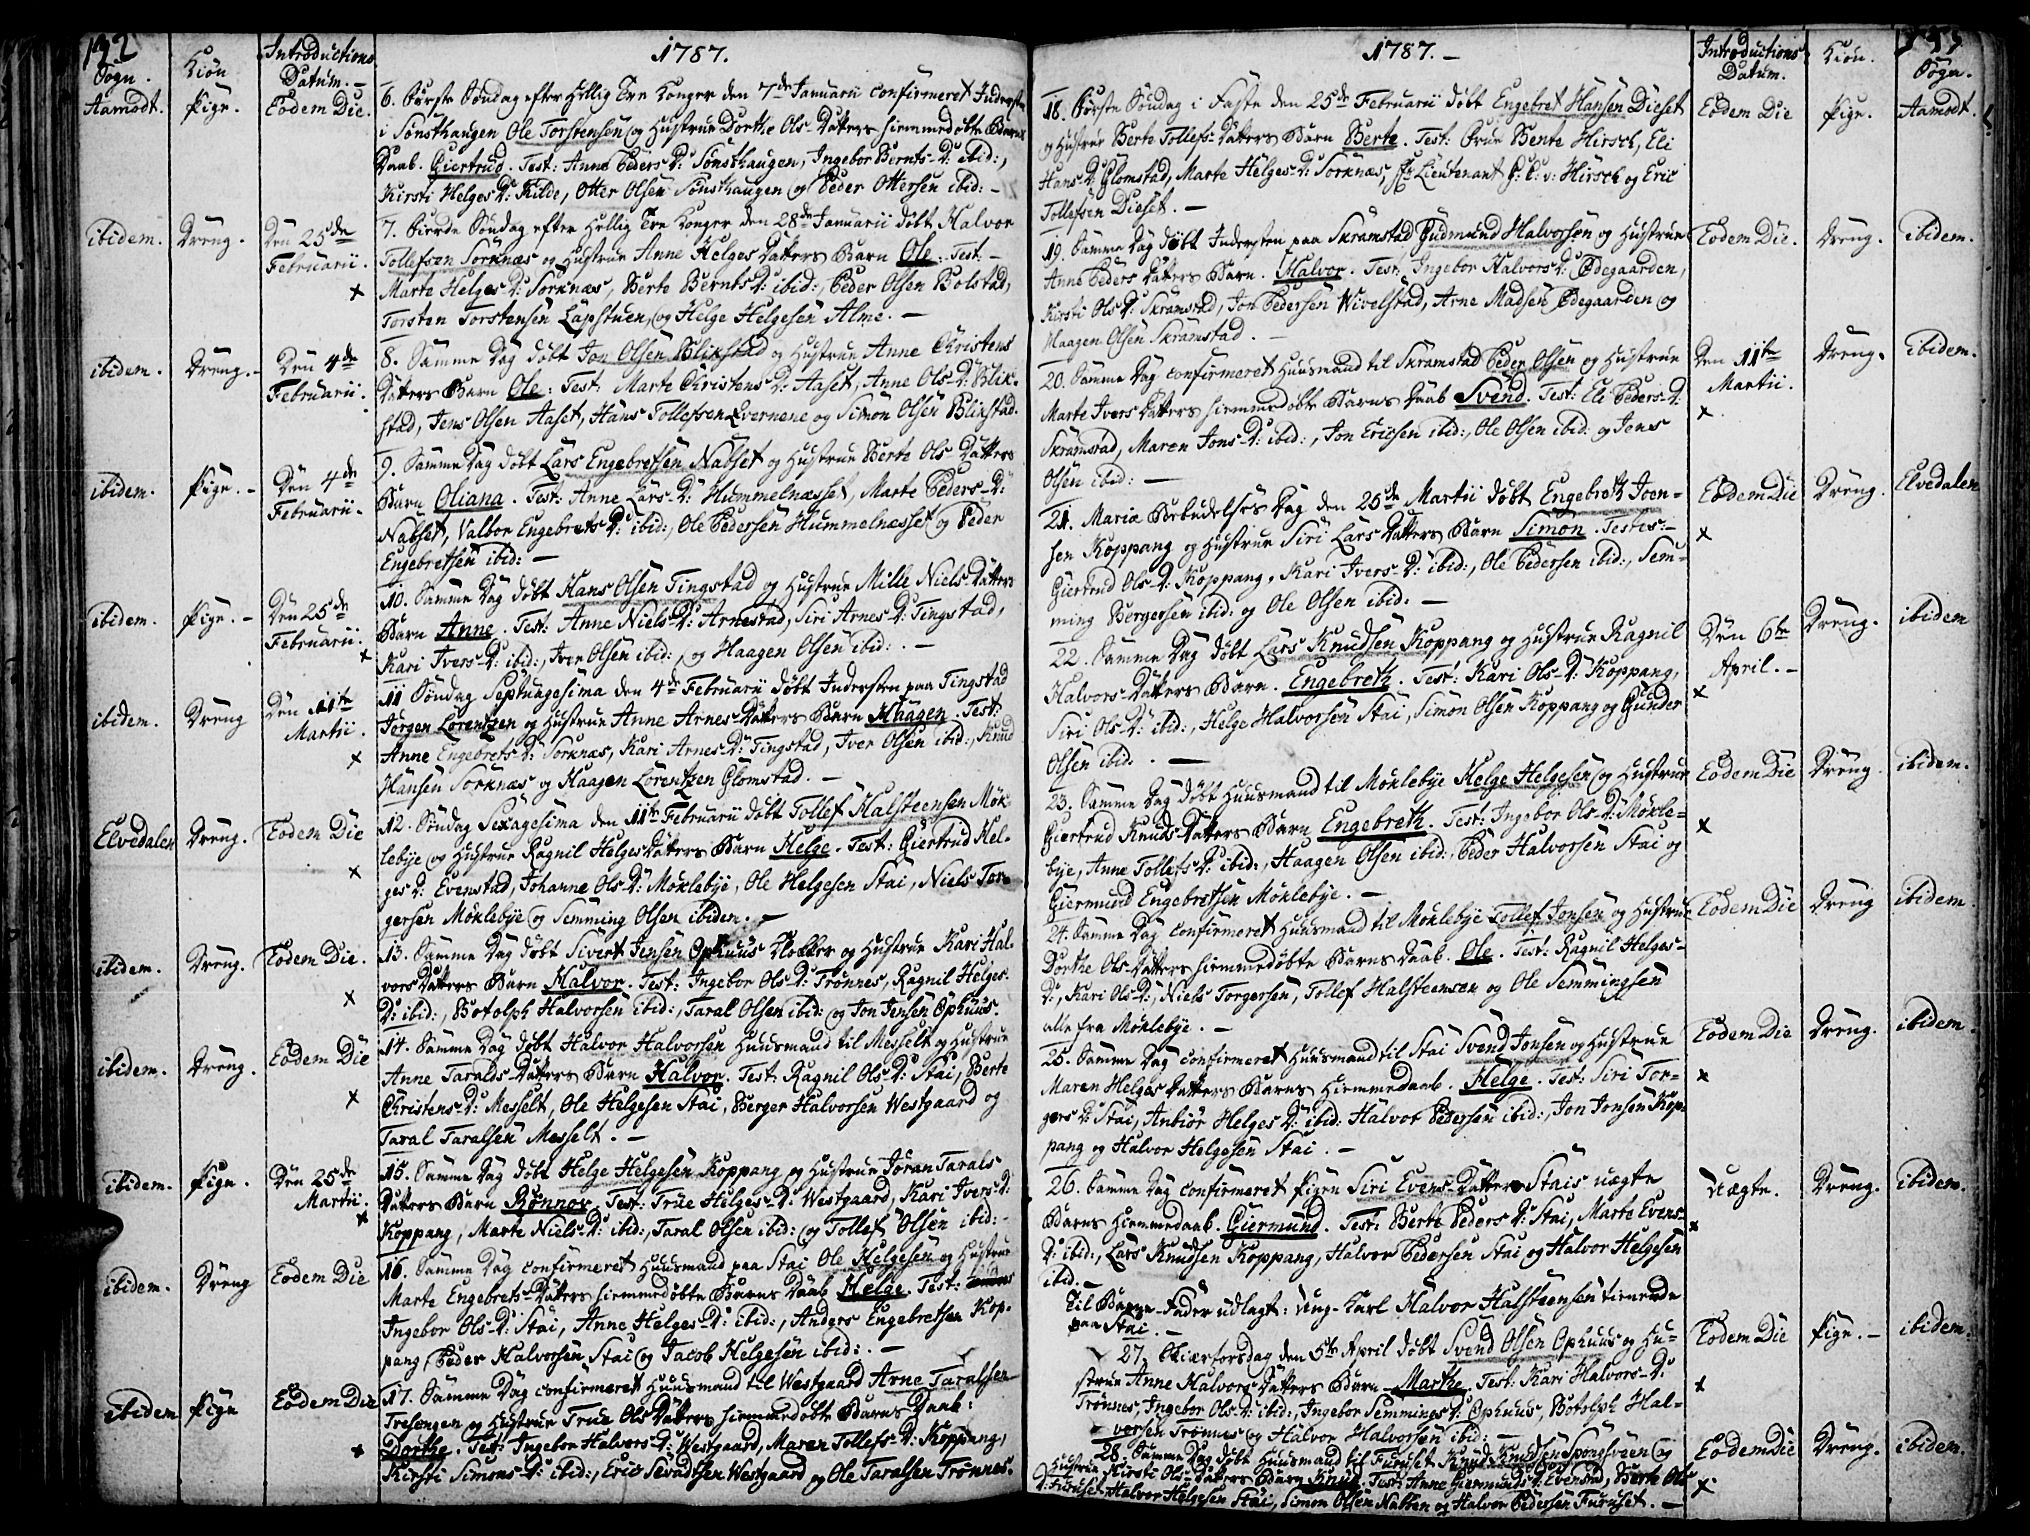 192
Sogn. Kiön Introductions Datum. 1787.
Aamodt. Pige. Eodem Die.
6. Första Söndag efter Hellig Tre Konger den 7de Januarii confirmeret Indersten
i Sönsthaugen Ole Torstensen og Hustrue Dorthe Ols-Datters hiemmedöbte Barns
Daab. Giertrud. Test: Anne Peders D: Sönsthaugen, Ingebor Bernts-D: ibid:,
Kirsti Helges D: Kilde, Otter Olsen Sönsthaugen og Peder Ottersen ibid: -
ibidem. Dreng. Den 25de Februarii.
7. Fierde Söndag efter Hellig Tre Konger den 28de Januarii döbt Halvor
Tollefsen Sorknæs og Hustrue Anne Helges Datters Barn Ole. Test: -
Marte Helges D: Sorknæs, Berte Bernts D: ibid:, Peder Olsen Bolstad,
Torsten Torstensen Lapstuen, og Helge Helgesen Alme. -
ibidem. Dreng. - Den 4de Februarii.
8. Samme Dag döbt Jon Olsen Blikstad og Hustrue Anne Christens
Datters Barn Ole. Test: Marte Christens D: Aaset, Anne Ols-D: Blik-
stad, Jens Olsen Aaset, Hans Tollefsen Evernene og Simon Olsen Blikstad.
ibidem. Pige. - Den 4de Februarii.
9. Samme Dag döbt Lars Engebretsen Nabset og Hustrue Berte Ols Datters
Barn Oliana. Test: Anne Lars-D: Hummelnæsset, Marte Peders-D:
Nabset, Valbor Engebrets D: ibid:, Ole Pedersen Hummelnæsset og Peder
Engebretsen ibid: -
ibidem. Pige. - Den 25de Februarii.
10. Samme Dag döbt Hans Olsen Tingstad og Hustrue Mille Niels-Datters
Barn Anne. Test: Anne Niels D: Arnestad, Siri Arnes D: Tingstad,
Kari Ivers-D: ibid:, Iver Olsen ibid:, og Haagen Olsen ibid:. -
ibidem. Dreng Den 11te Martii.
11 Söndag Septuagesima den 4de Februarii döbt Indersten paa Tingstad
Jörgen Lorentzen og Hustrue Anne Arnes-Datters Barn Haagen. Test:
Anne Engebrets-D: Sorknæs, Kari Arnes-D: Tingstad, Iver Olsen ibid:, Knud
Hansen Sorknæs og Haagen Lorentzen Glomstad. -
Elvedalen Dreng. Eodem Die
12. Söndag Sexagesima den 11te Februarii döbt Tollef Halsteensen Mök-
lebye og Hustrue Ragnil Helges Datters Barn Helge. Test: Giertrud Hel-
ges D: Evenstad, Johanne Ols D: Möklebye, Ole Helgesen Stai, Niels Tor-
gersen Möklebye og Semming Olsen ibidem. -
ibidem. Dreng. Eodem Die.
13. Samme Dag döbt Sivert Jensen Ophuus Klokker og Hustrue Kari Hal-
vors Datters Barn Halvor. Test: Ingebor Ols-D: Trönnes, Ragnil Helges-
D: ibid:, Botolph Halvorsen ibid:, Taral Olsen ibid: og Jon Jensen Ophuus.
ibidem. Dreng. Eodem Die
14. Samme Dag döbt Halvor Halvorsen Huusmand til Messelt og Hustrue
Anne Taralds-Datters Barn Halvor. Test Ragnil Ols-D: Stai, Berte
Christens-D: Messelt, Ole Helgesen Stai, Berger Halvorsen Westgaard og
Taral Taralsen Messelt. -
ibidem. Pige. Den 25de Martii.
15. Samme Dag döbt Helge Helgesen Koppang og Hustrue Jöran Tarals
Datters Barn Rönnov. Test: True Helges-D: Westgaard, Kari Ivers-D:
Koppang, Marte Niels-D: ibid:, Taral Olsen ibid: og Tollef Olsen ibid: -
ibidem. Dreng Eodem Die
16. Samme Dag confirmeret Huusmand paa Stai Ole Helgesen og Hustrue
Marte Engebrets-Datters hiemmedöbte Barns Daab Helge. Test:
Ingebor Ols-D: Stai, Anne Helges-D: ibid:, Anders Engebretsen Kop-
pang, Peder Halvorsen Stai og Jacob Helgesen ibid:. -
ibidem Pige Eodem Die
17. Samme Dag confirmeret Huusmand til Westgaard Arne Taralsen
Tresengen og Hustrue True Ols Datters hiemmedöbte Barns Daab:
Dorthe. Test: Ingebor Halvors-D: Westgaard, Maren Tollefs-D: Koppang,
Kirsti Simons-D: ibid:, Eric Sevadtsen Westgaard og Ole Taralsen Trönnes.
1787. - Introductions Datum. Kiön. Sogn.
18. Förste Söndag i Faste den 25de Februarii döbt Engebret Hansen Dieset
og Hustrue Berte Tollefs-Datters Barn Berte. Test: Frue Bente Hirsch, Eli
Hans-D: Glomstad, Marte Helges-D: Sorknæs, Lieutenant v: Hirsch og Eric
Tollefsen Dieset. -
Eodem Die Pige. Aamodt.
19. Samme Dag döbt Indersten paa Skramstad Gudmund Halvorsen og Hustrue
Anne Peders Datters Barn. Halvor. Test: Ingebor Halvors D: Ödegaarden,
Kirsti Ols-D: Skramstad, Jon Pedersen Wivelstad, Arne Madsen Ödegaarden og
Haagen Olsen Skramstad. -
Eodem Die. Dreng. ibidem.
20. Samme Dag confirmeret Huusmand til Skramstad Peder Olsen og Hustrue
Marte Ivers Datters hiemmedöbte Barns Daab Svend. Test: Eli Peders-D:
Skramstad, Maren Jons-D: ibid:, Jon Ericsen ibid:, Ole Olsen ibid: og Jens
Olsen ibid: -
Den 11te Martii. Dreng. ibidem.
21. Mariæ Bebudelses Dag den 25de Martii döbt Engebreth Joen-
sen Koppang og Hustrue Siri Lars Datters Barn Simon. Testes: -
Giertrud Ols-D: Koppang, Kari Ivers-D: ibid:, Ole Pedersen ibid:, Sem-
ming Bergersen ibid: og Ole Olsen ibid: -
Eodem Die Dreng. Elvedalen
22. Samme Dag döbt Lars Knudsen Koppang og Hustrue Ragnil
Halvors-Datters Barn. Engebreth. Test: Kari Ols-D: Koppang,
Siri Ols-D: ibid:, Helge Halvorsen Stai, Simon Olsen Koppang og Gunder
Olsen ibid:. -
Den 6te April. - Dreng. ibidem
23. Samme Dag döbt Huusmand til Möklebye Helge Helgesen og Hustrue
Giertrud Knuds-Datters Barn Engebreth. Test: Ingebor Ols-D: Mökle-
bye, Anne Tollefs D: ibid:, Haagen Olsen ibid:, Peder Halvorsen Stai og
Giermund Engebretsen Möklebye. -
Eodem Die Dreng. ibidem.
24. Samme Dag confirmeret Huusmand til Möklebye Tollef Jonsen og Hustrue
Dorthe Ols-Datters hiemmedöbte Barns Daab. Ole. Test: Ragnil Helges-
D:, Kari Ols-D:, Niels Torgersen, Tollef Halsteensen og Ole Semmingsen
alle fra Möklebye. -
Eodem Die Dreng ibidem
25. Samme Dag confirmeret Huusmand til Stai Svend Jonsen og Hustrue
Maren Helges Datters Barns Hiemmedaab. Helge. Test: Siri Tor-
gers D: Stai, Anbiör Helges D: ibid: Halvor Pedersen ibid:, Jon Jonsen Kop-
pang og Halvor Helgesen Stai. -
Eodem Die Dreng. ibidem.
26. Samme Dag confirmeret Pigen Siri Evens-Datter Stais uægte
Barns Hiemmedaab. Giermund. Test: Berte Peders D: Stai, Marte Evens-
D: ibid:, Lars Knudsen Koppang, Halvor Pedersen Stai og Halvor Helgesen
ibid: -
Til Barne-Fader udlagt: Ung-Karl Halvor Halsteensen tienende
paa Stai. -
Uægte. Dreng. ibidem.
27. Skiærtorsdag den 5te April döbt Svend Olsen Ophuus og Hu-
strue Anne Halvors Datters Barn Marthe. Test: Kari Halvors-D:
Trönnes, Ingebor Ols-D: ibid:, Ingebor Semmings D: Ophuus, Botolph Hal-
vorsen Trönnes og Halvor Halvorsen ibid: -
Eodem Die Pige. - ibidem.
28. Samme Dag döbt Huusmand til Furuset Knud Knudsen Spongsveen og
Hustrue Kirsti Ols-Datters Barn Knud. Test: Anne Giermunds D: Evenstad, Berte Ols
D: Furuset, Halvor Helgesen Stai, Simon Olsen Nabsen og Halvor Pedersen Furuset. -
Eodem Die Dreng. ibidem.